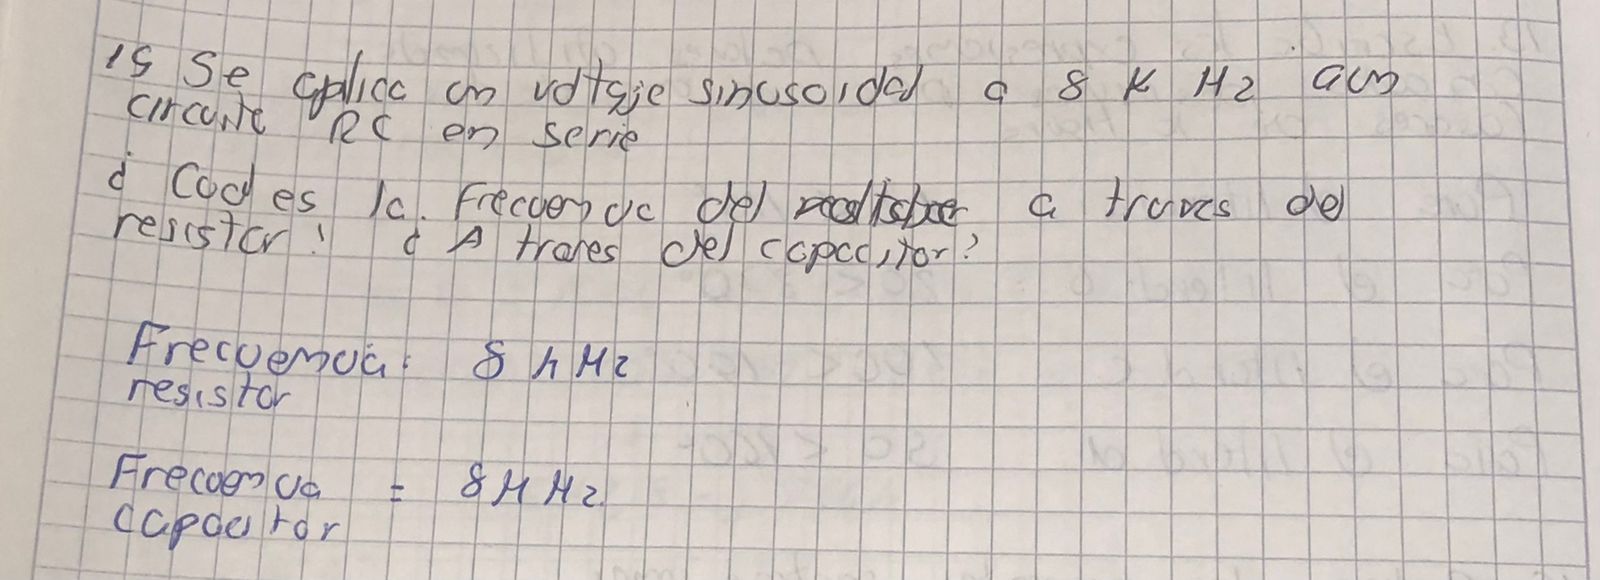 15 Se aplica un voltaje sinusoidal a 8 K Hz a un
circuito RC en serie
¿ Cual es la. Frecuencia del a traves del
resistor? ¿ A traves del capacitor?
Frecuencia: 8 k Hz
resistor
Frecuencia = 8 k Hz.
capacitor